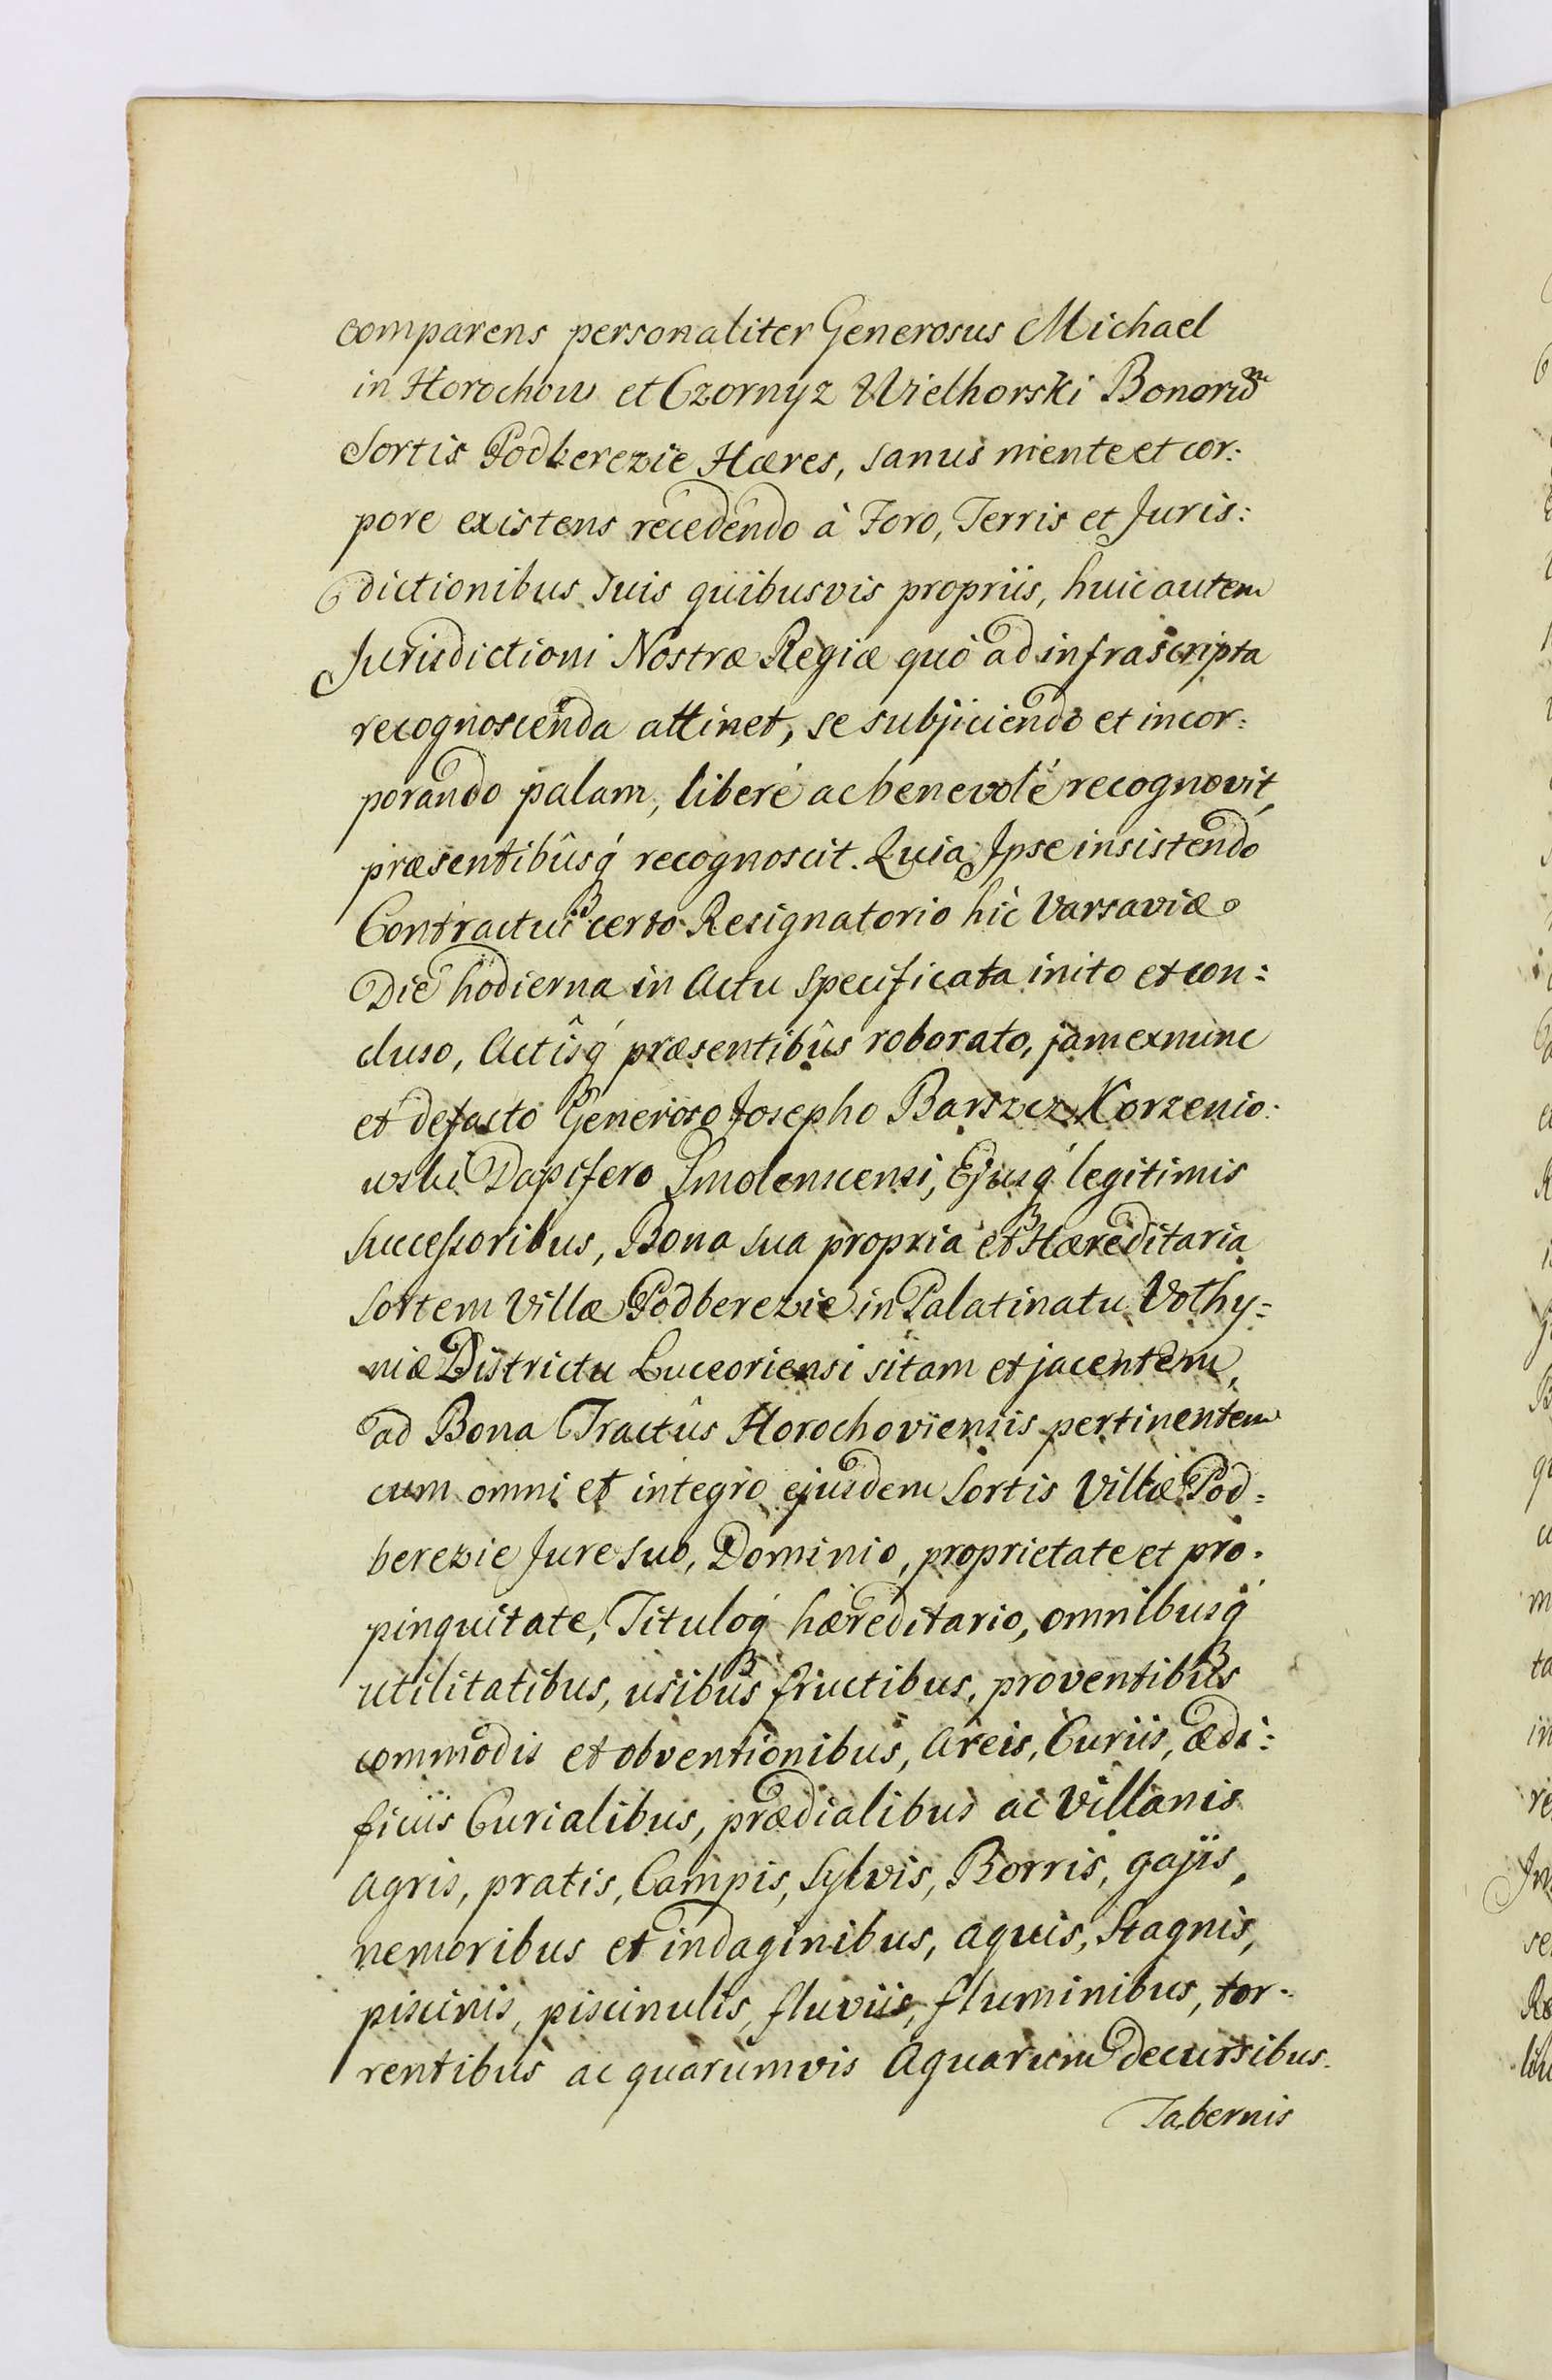 comparens personaliter Generosus Michael
in Horochow et Czornyz Wielhorski Bonorũm
Sortis Podberezie Hæres, sanus mente et cor:
pore existens recedendo à Foro, Terris et Juris:
dictionibus suis quibusvis propriis, huic autem
Jurisdictioni Nostræ Regiæ quò ad infrascripta
recognoscenda attinet, se subjiciendo et incor:
porando palam, liberé ac benevolé recognovit,
præsentibûsq́ recognoscit. Quia Ipse insistendo
Contractui certo Resignatorio hìc Varsaviæ
Die hodierna in Actu specificata inito et con:
cluso, Actîsq́ præsentibûs roborato, jam ex nunc
et de facto Generoso Josepho Barszcz Korzenio:
wski Dapifero Smolenscensi, Ejusq́ legitimis
Successoribus, Bona sua propria et Hæreditaria
Sortem Villæ Podberezie in Palatinatu Volhy:
niæ Districtu Luceoriensi sitam et jacentem,
ad Bona Tractûs Horochoviensis pertinentem
cum omni et integro ejusdem Sortis Villæ Pod:
berezie Jure suo, Dominio, proprietate et pro:
pinquitate, Tituloq́ hæreditario, omnibusq́
utilitatibus, usibus fructibus, proventibus
commodis et obventionibus, Areis, Curiis, ædi:
ficiis Curialibus, prædialibus ac Villanis
Agris, pratis, Campis, Sylvis, Borris, gajis,
nemoribus et indaginibus, aquis, Stagnis,
piscinis, piscinulis, fluviis, fluminibus, tor:
rentibus ac quarumvis Aquarum decursibus.
Tabernis